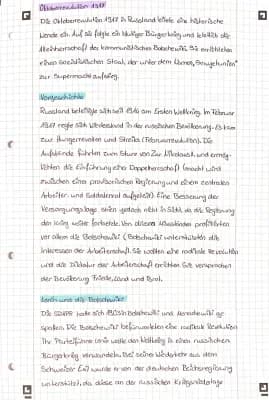 Oktoberrevolution 1917
Die Oktoberrevolution 1917 in Russland leitete eine historische
Wende ein. Auf sie folgte ein blutiger Bürgerkrieg und letztlich die
Alleinherrschaft der kommunistischen Bolschewiki. Sie errichteten
einen sozialistischen Staat, der unter dem Namen „Sowjetunion"
zur Supermacht aufstieg.
Vorgeschichte
Russland beteiligte sich seit 1914 am Ersten Weltkrieg. Im Februar
1917 regte sich Widerstand in der russischen Bevölkerung. Es kam
zu Hungerrevolten und Streiks (Februarrevolution). Die
Aufstände führten zum Sturz von Zar Nikolaus II. und ermög-
lichten die Einführung einer Doppelherrschaft (Macht wird
zwischen einer provisorischen Regierung und einem zentralen
Arbeiter- und Soldatenrat aufgeteilt). Eine Besserung der
Versorgungslage schien jedoch nicht in Sicht, da die Regierung
den Krieg weiter fortsetzte. Von diesen Missständen profitierten
vor allem die Bolschewiki (Bolschewiki unterstützten die
Interessen der Arbeiterschaft. Sie wollten eine radikale Revolution
und die Diktatur der Arbeiterschaft errichten. Sie versprachen
der Bevölkerung Friede, Land und Brot.
Lenin und die Bolschewiki
Die SDAPR hatte sich 1903 in Bolschewiki und Menschewiki ge-
spalten. Die Bolschewiki befürworteten eine radikale Revolution.
Ihr Parteiführer Lenin wollte den Weltkrieg in einen russischen
Bürgerkrieg verwandeln. Bei seiner Wiederkehr aus dem
Schweizer Exil wurde er von der deutschen Reichsregierung
unterstützt, da diese an der russischen Kriegsniederlage